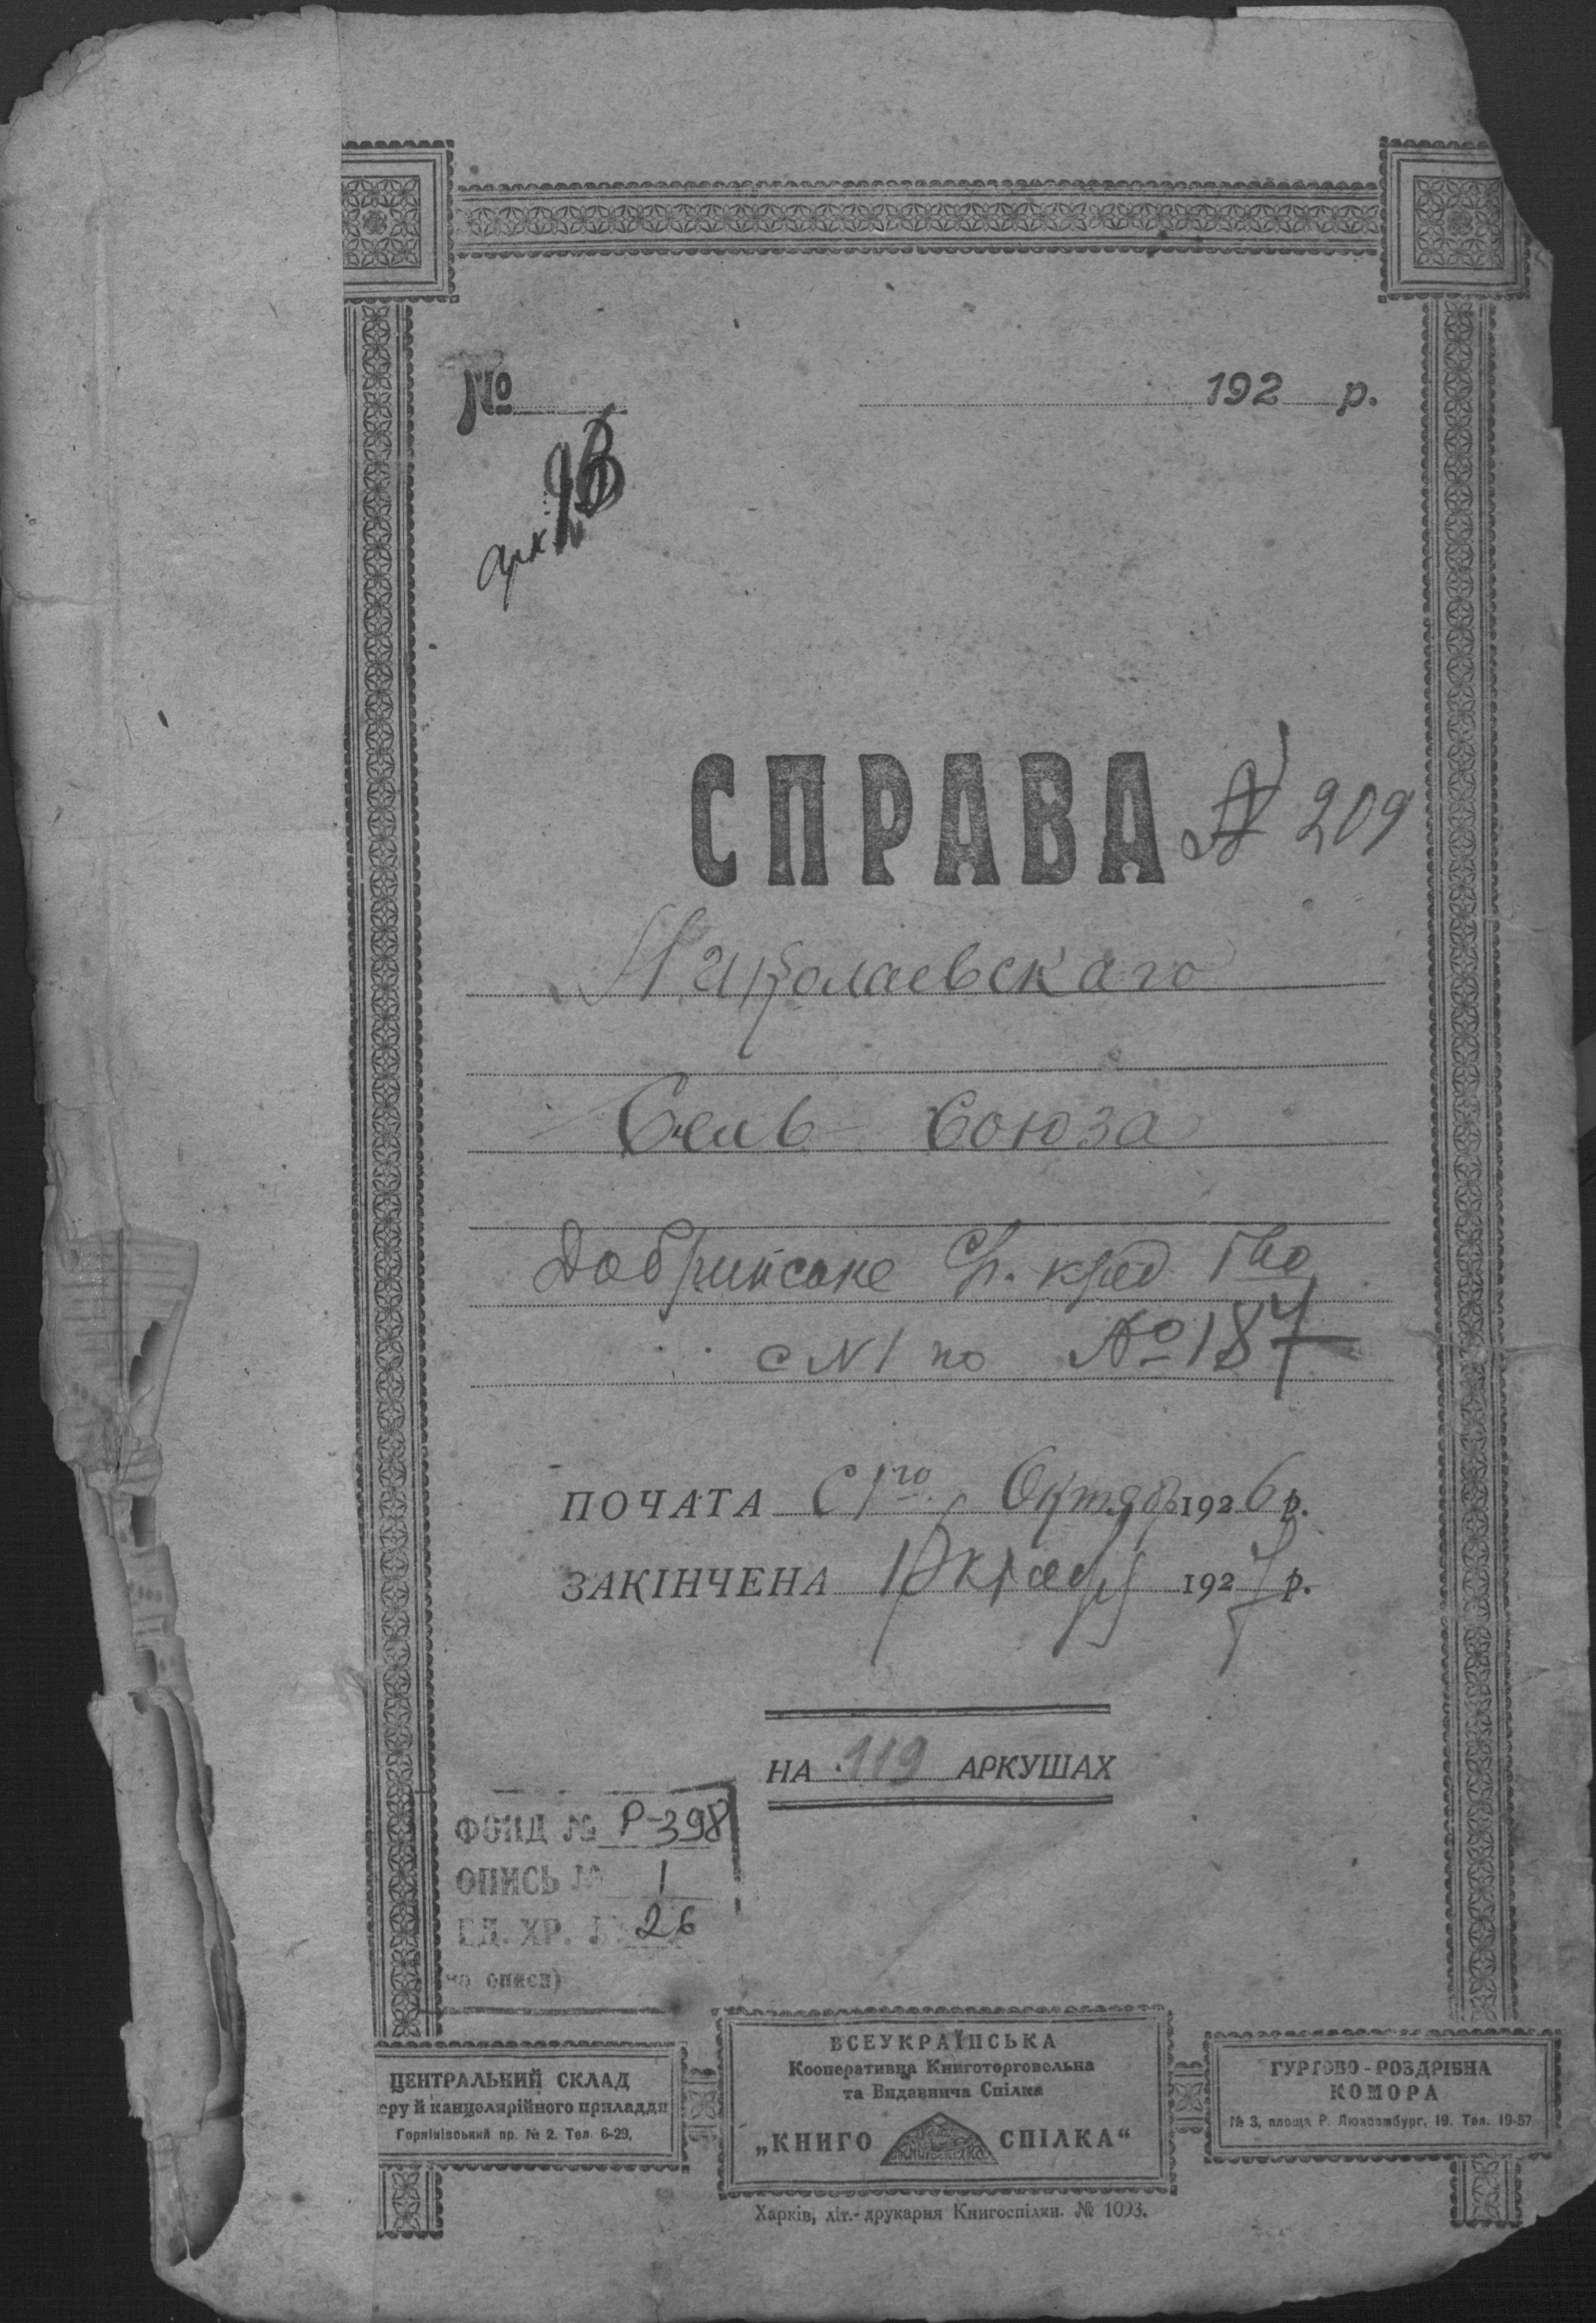 № 192 р.
арк.
СПРАВА № 209
Николаевскаго
Сель Союза
Добринське С/г. кред. Т-во
с №1 по № 187
ПОЧАТА с 1го Октяб 1926 р.
ЗАКІНЧЕНА 1927 р.
НА 119 АРКУШАХ
ФОНД № Р-398
ОПИСЬ № 1
ЕД. ХР. № 26
по описи)
ЦЕНТРАЛЬНИЙ СКЛАД
еру й канцелярійного приладдя
№ 2. Тел. 6-29,
ВСЕУКРАЇНСЬКА
Кооперативна Книготорговельна
та Видавнича Спілка
„КНИГО СПІЛКА“
ГУРТОВО-РОЗДРІБНА
КОМОРА
№ 3, площа Р. Люксембург, 19. Тел. 19-57
Харків, літ.-друкарня Книгоспілки. № 1093.